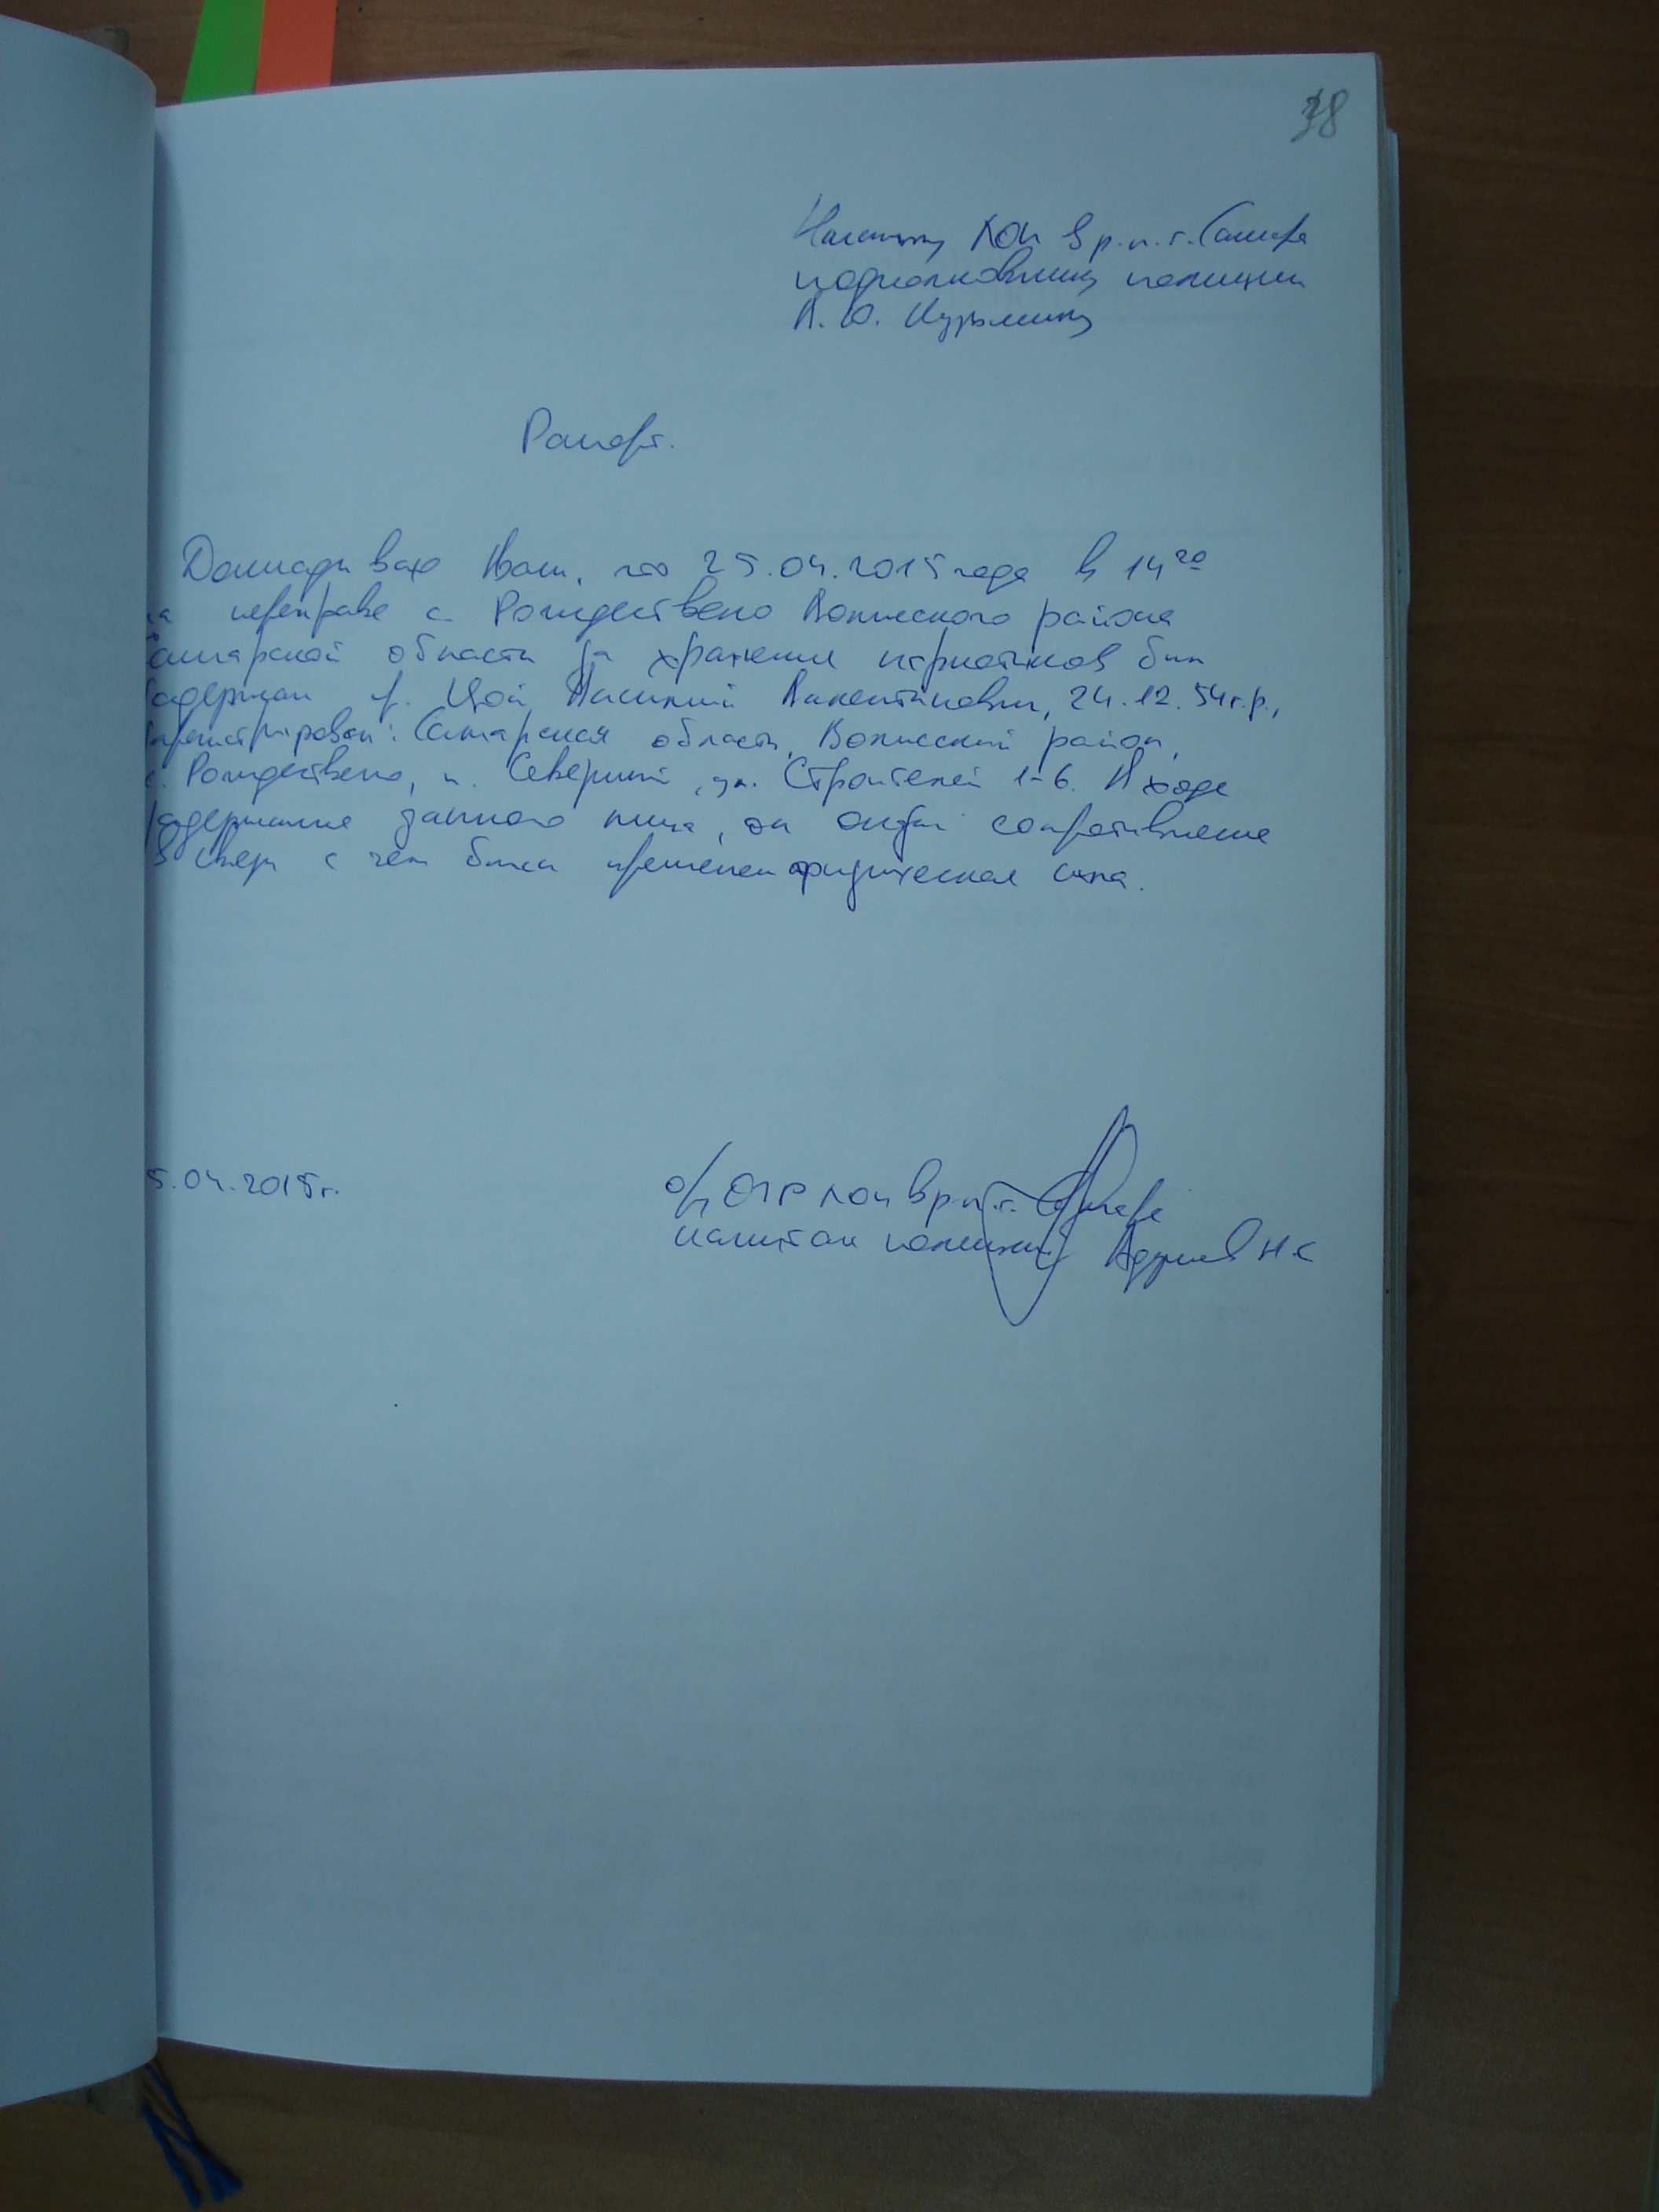 38
Начальнику ЛОП в р.п. г. Самара
подполковнику полиции
А. Ю. Кузьмину
Рапорт.
Докладываю Вам, что 25.04.2015 года в 14 20
на переправе с. Рождествено Волжского района
Самарской области за хранение наркотиков был
задержан гр. Цой, 24.12.54 г.р.,
зарегистрирован: Самарская область, Волжский район,
с. Рождествено, п. Северный, ул. Строителей 1-6. В ходе
задержания данного лица, он оказал сопротивление
в связи с чем была применена физическая сила.
5.04.2015г.
о/у ЛОП в р.п. г. Самара
капитан полиции Н.С